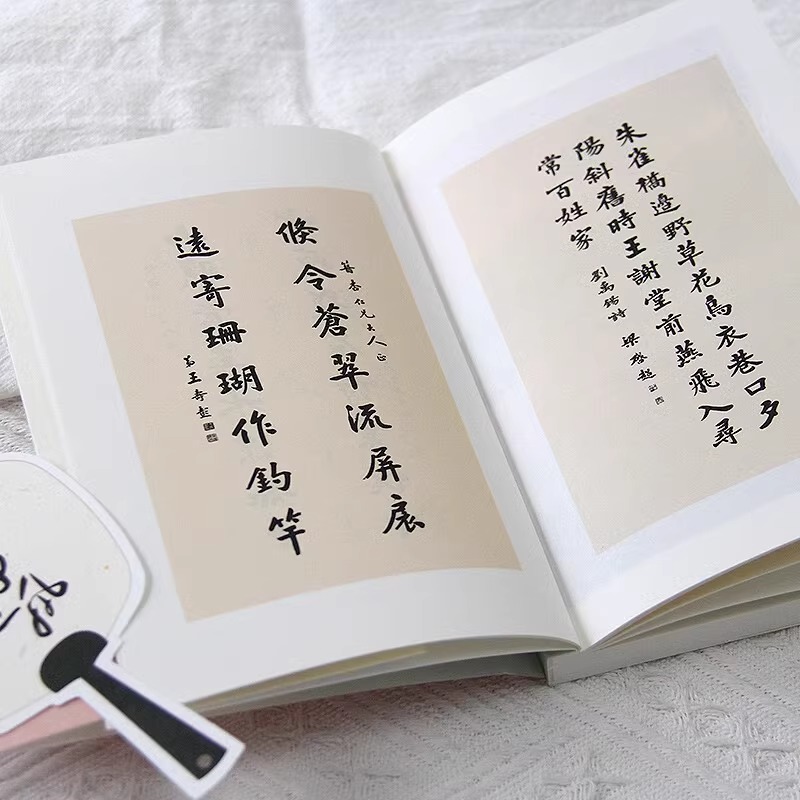 朱雀橋邊野草花烏衣巷口夕
陽斜舊時王謝堂前燕飛入尋
常百姓家
劉禹錫詩 梁啓超
杏仁兄大人正
倐令蒼翠流屏扆
遠寄珊瑚作釣竿
弟王寿彭